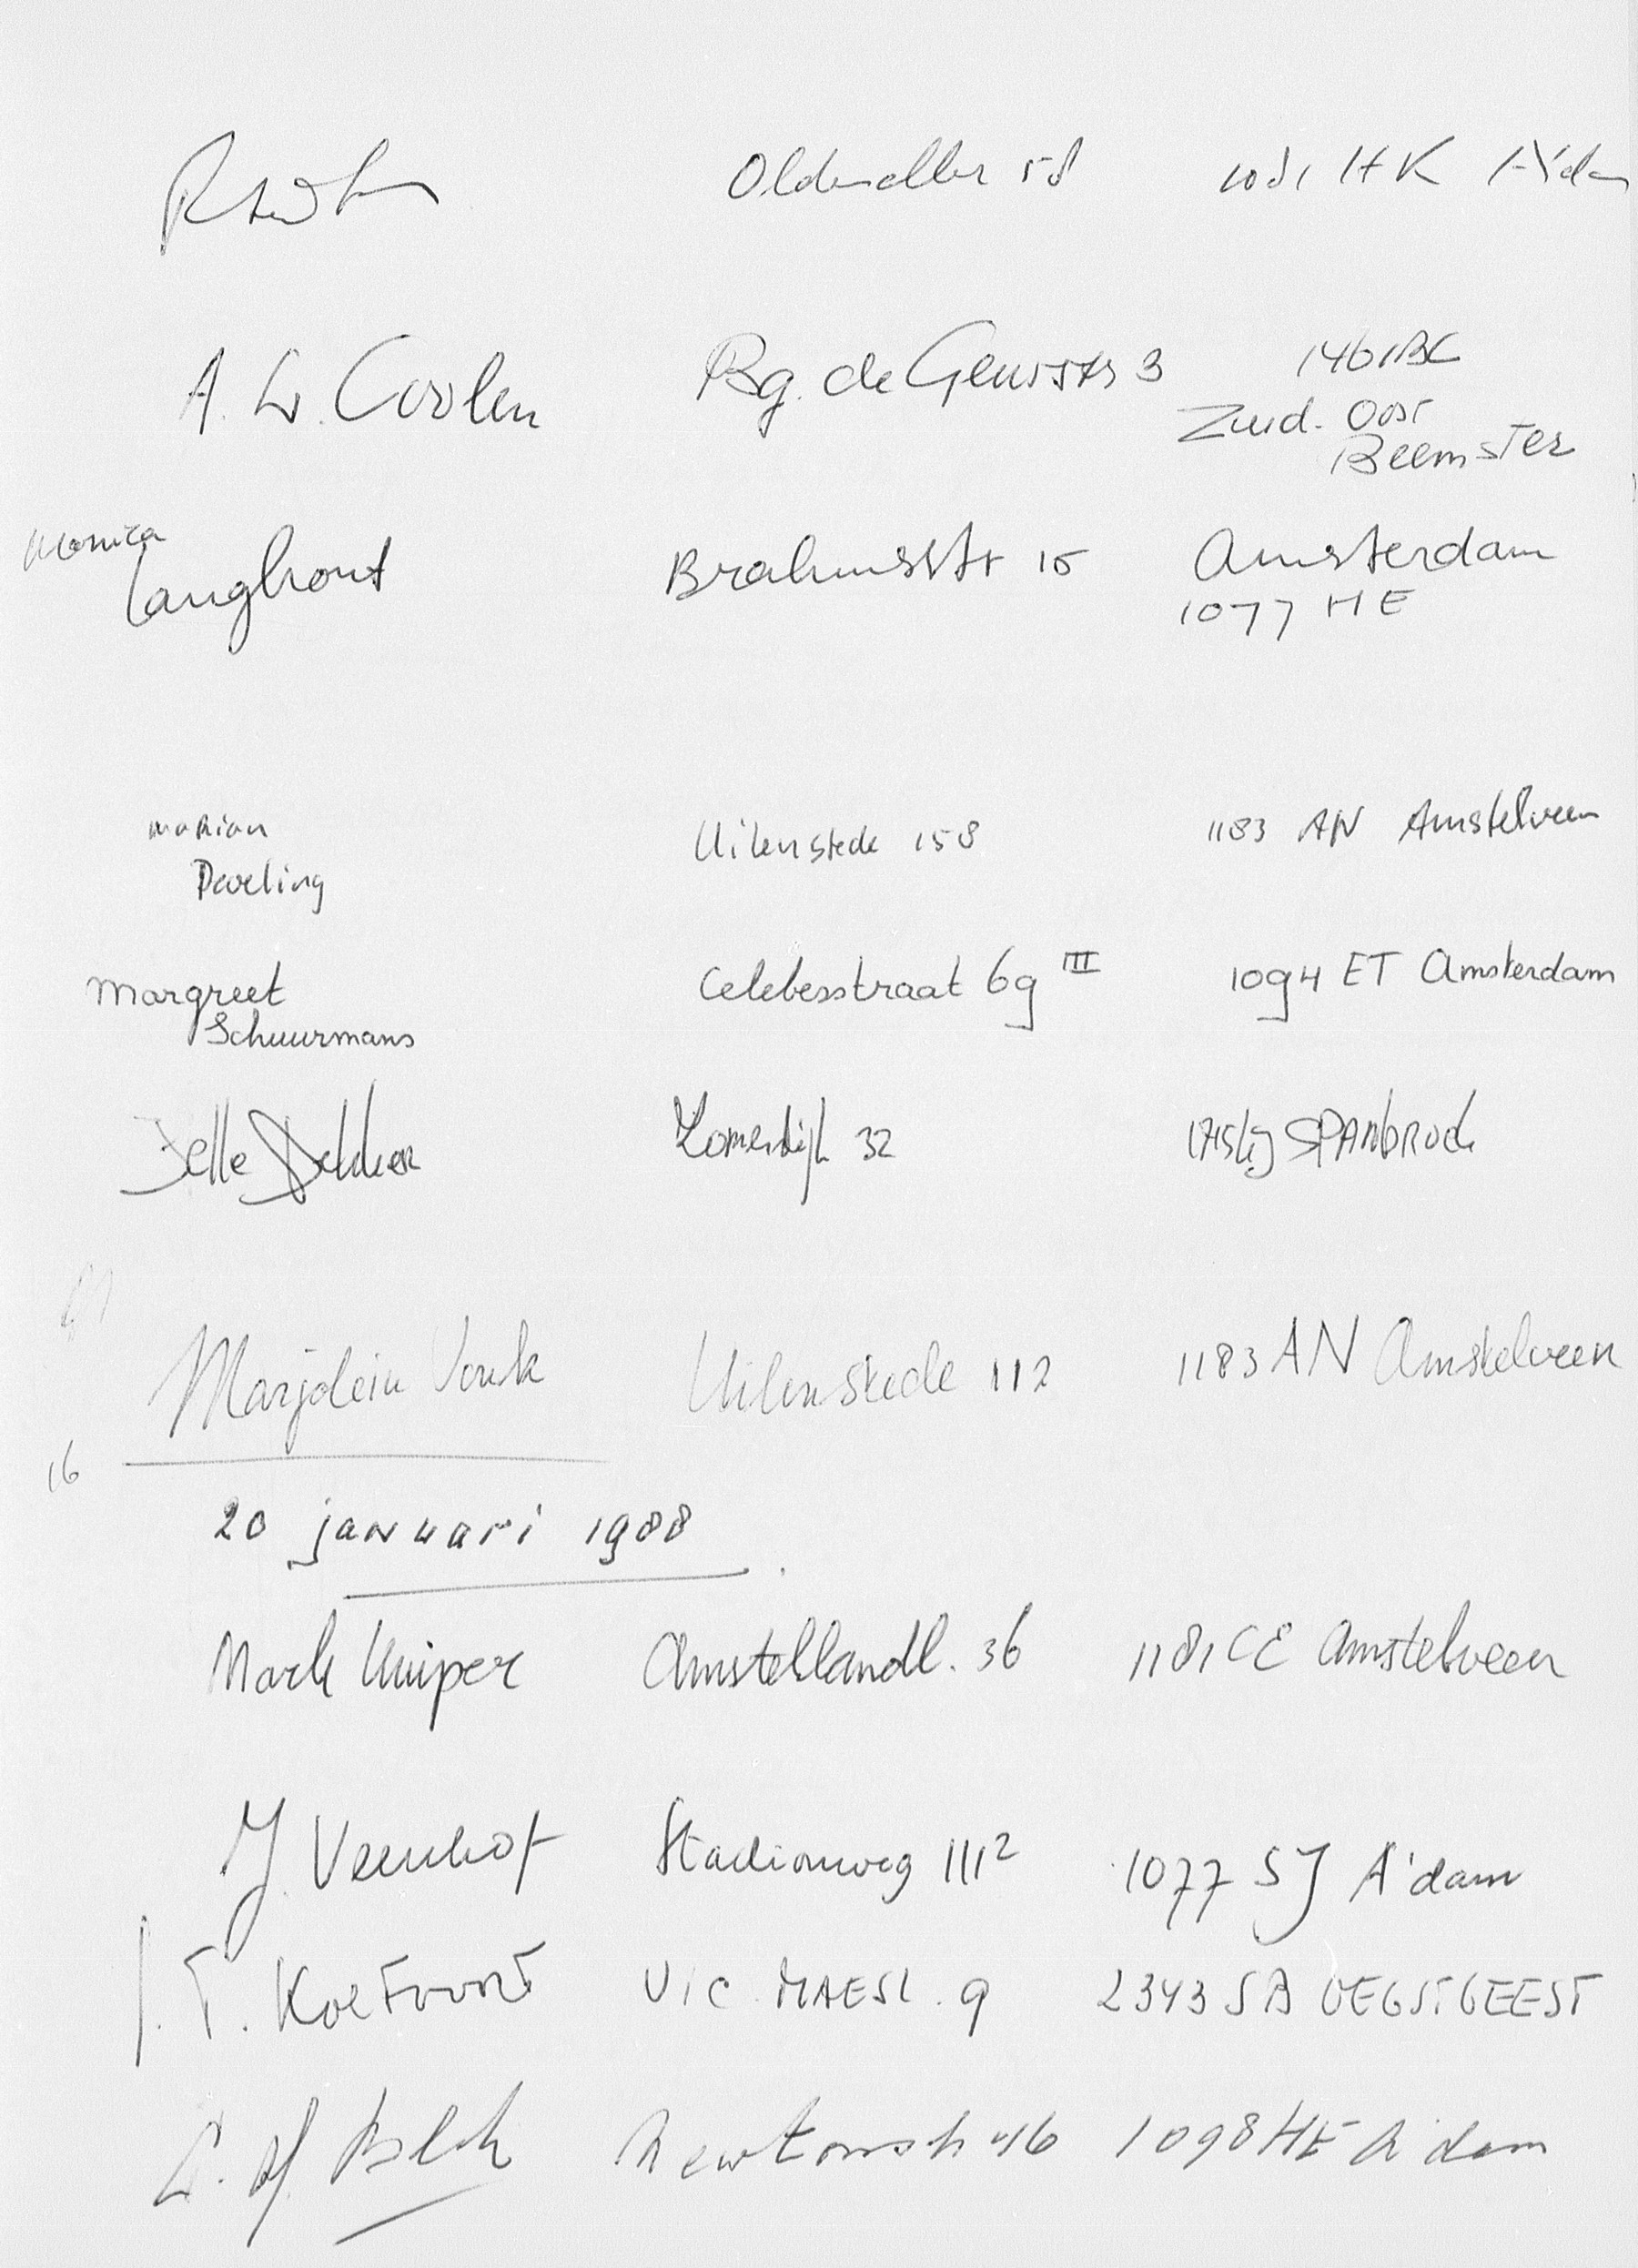 Oldenaller 58 1081 HK A'dam
A. W. Coolen Bg. de Geusstr 3 1461BC
Zuid-Oost
Beemster
Monica
Langhout Brahmsstr 15 Amsterdam
1077 HE
Marian Uilenstede 158 1183 AN Amstelveen
Develing
Margreet Celebesstraat 69 III 1094 ET Amsterdam
Schuurmans
Jelle Dekker Zomerdijk 32 1715 SPANBROEK
Marjolein Vonk Uilenstede 112 1183 AN Amstelveen
16
20 januari 1988
Mark Kuiper Amstellandl. 36 1181 CE Amstelveen
J. Veenhof Stadionweg 111² 1077 SJ A'dam
J. T. Koetvoort VIC. MAESL. 9 2343 SB OEGSTGEEST
Newtonstr 46 1098 HE A'dam